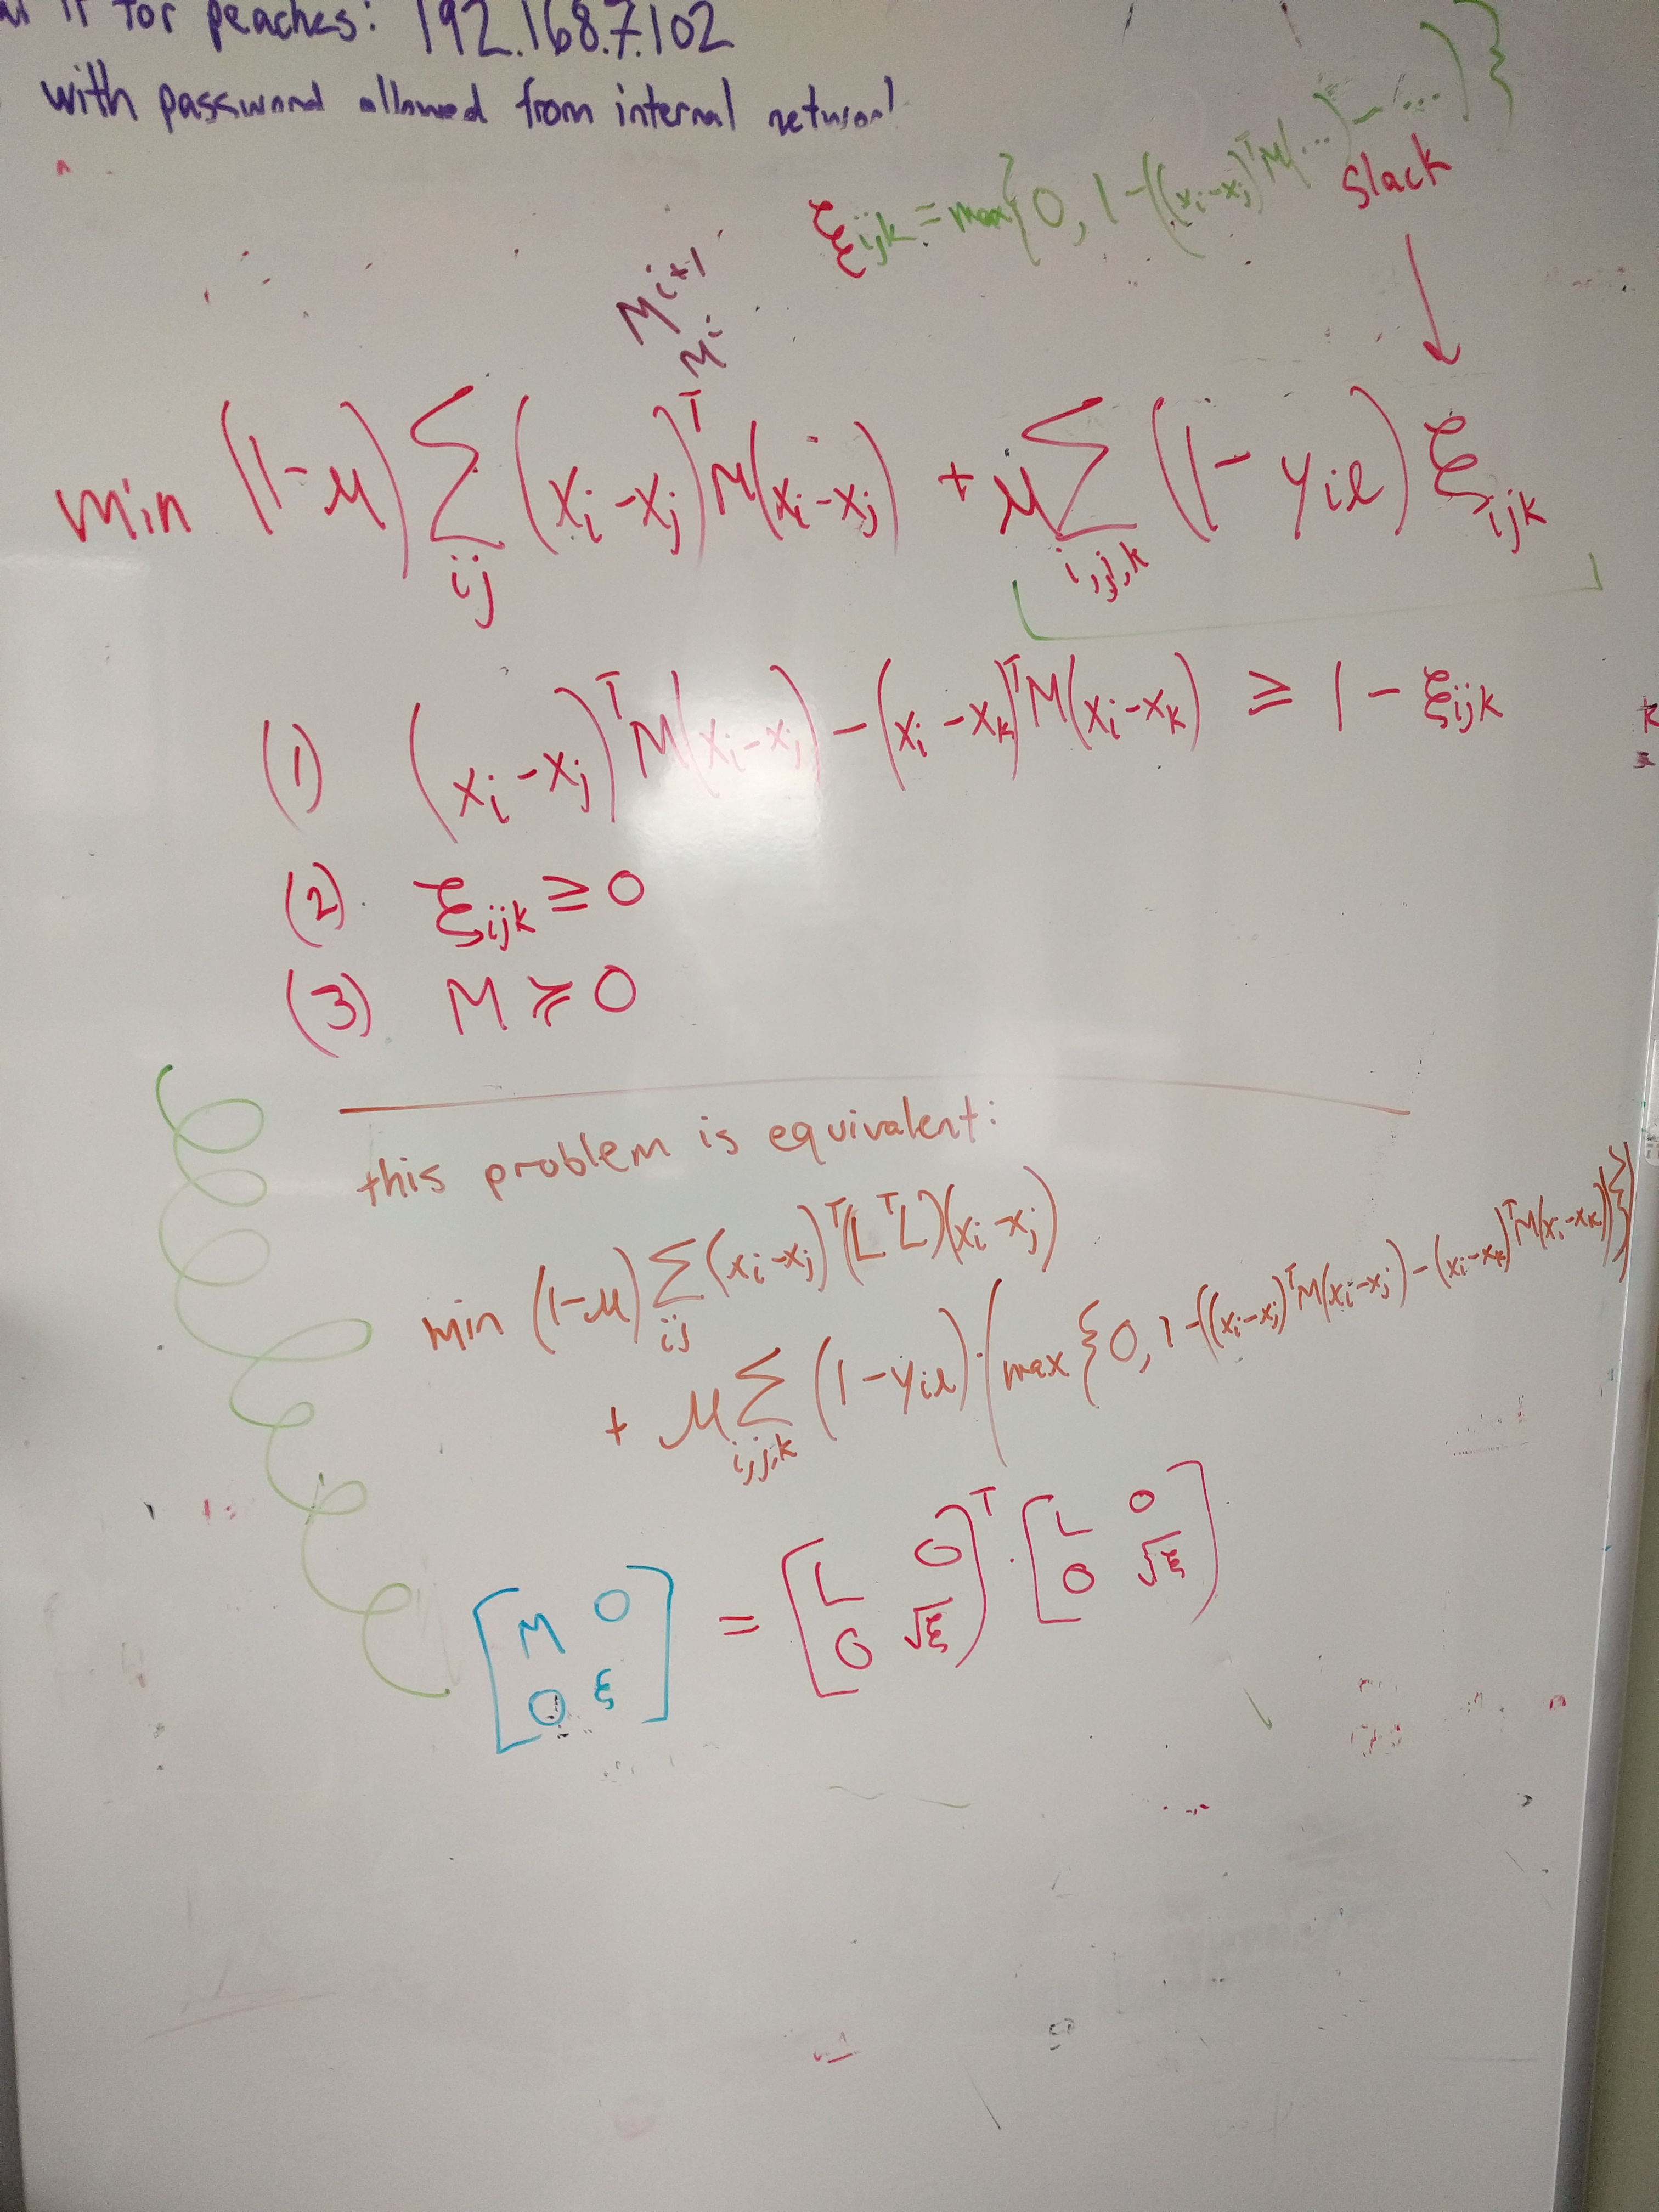 it for peaches: 192.168.7.102
with password allowed from internal network
ξijk = max{0, 1-((xi-xj)ᵀM(...)-...)}
slack
Mⁱ⁺¹
Mⁱ
min (1-μ) ∑ij (xi-xj)ᵀM(xi-xj) + μ∑i,j,k (1-yil) ξijk
(1) (xi-xj)ᵀM(xi-xj) - (xi-xk)ᵀM(xi-xk) ≥ 1-ξijk
(2) ξijk ≥ 0
(3) M ≽ 0
this problem is equivalent:
min (1-μ) ∑ij (xi-xj)ᵀ(LᵀL)(xi-xj)
+ μ∑i,j,k (1-yil)·(max{0, 1-((xi-xj)ᵀM(xi-xj)-(xi-xk)ᵀM(xi-xk))})
[M 0; 0 ξ] = [L 0; 0 √ξ]ᵀ · [L 0; 0 √ξ]